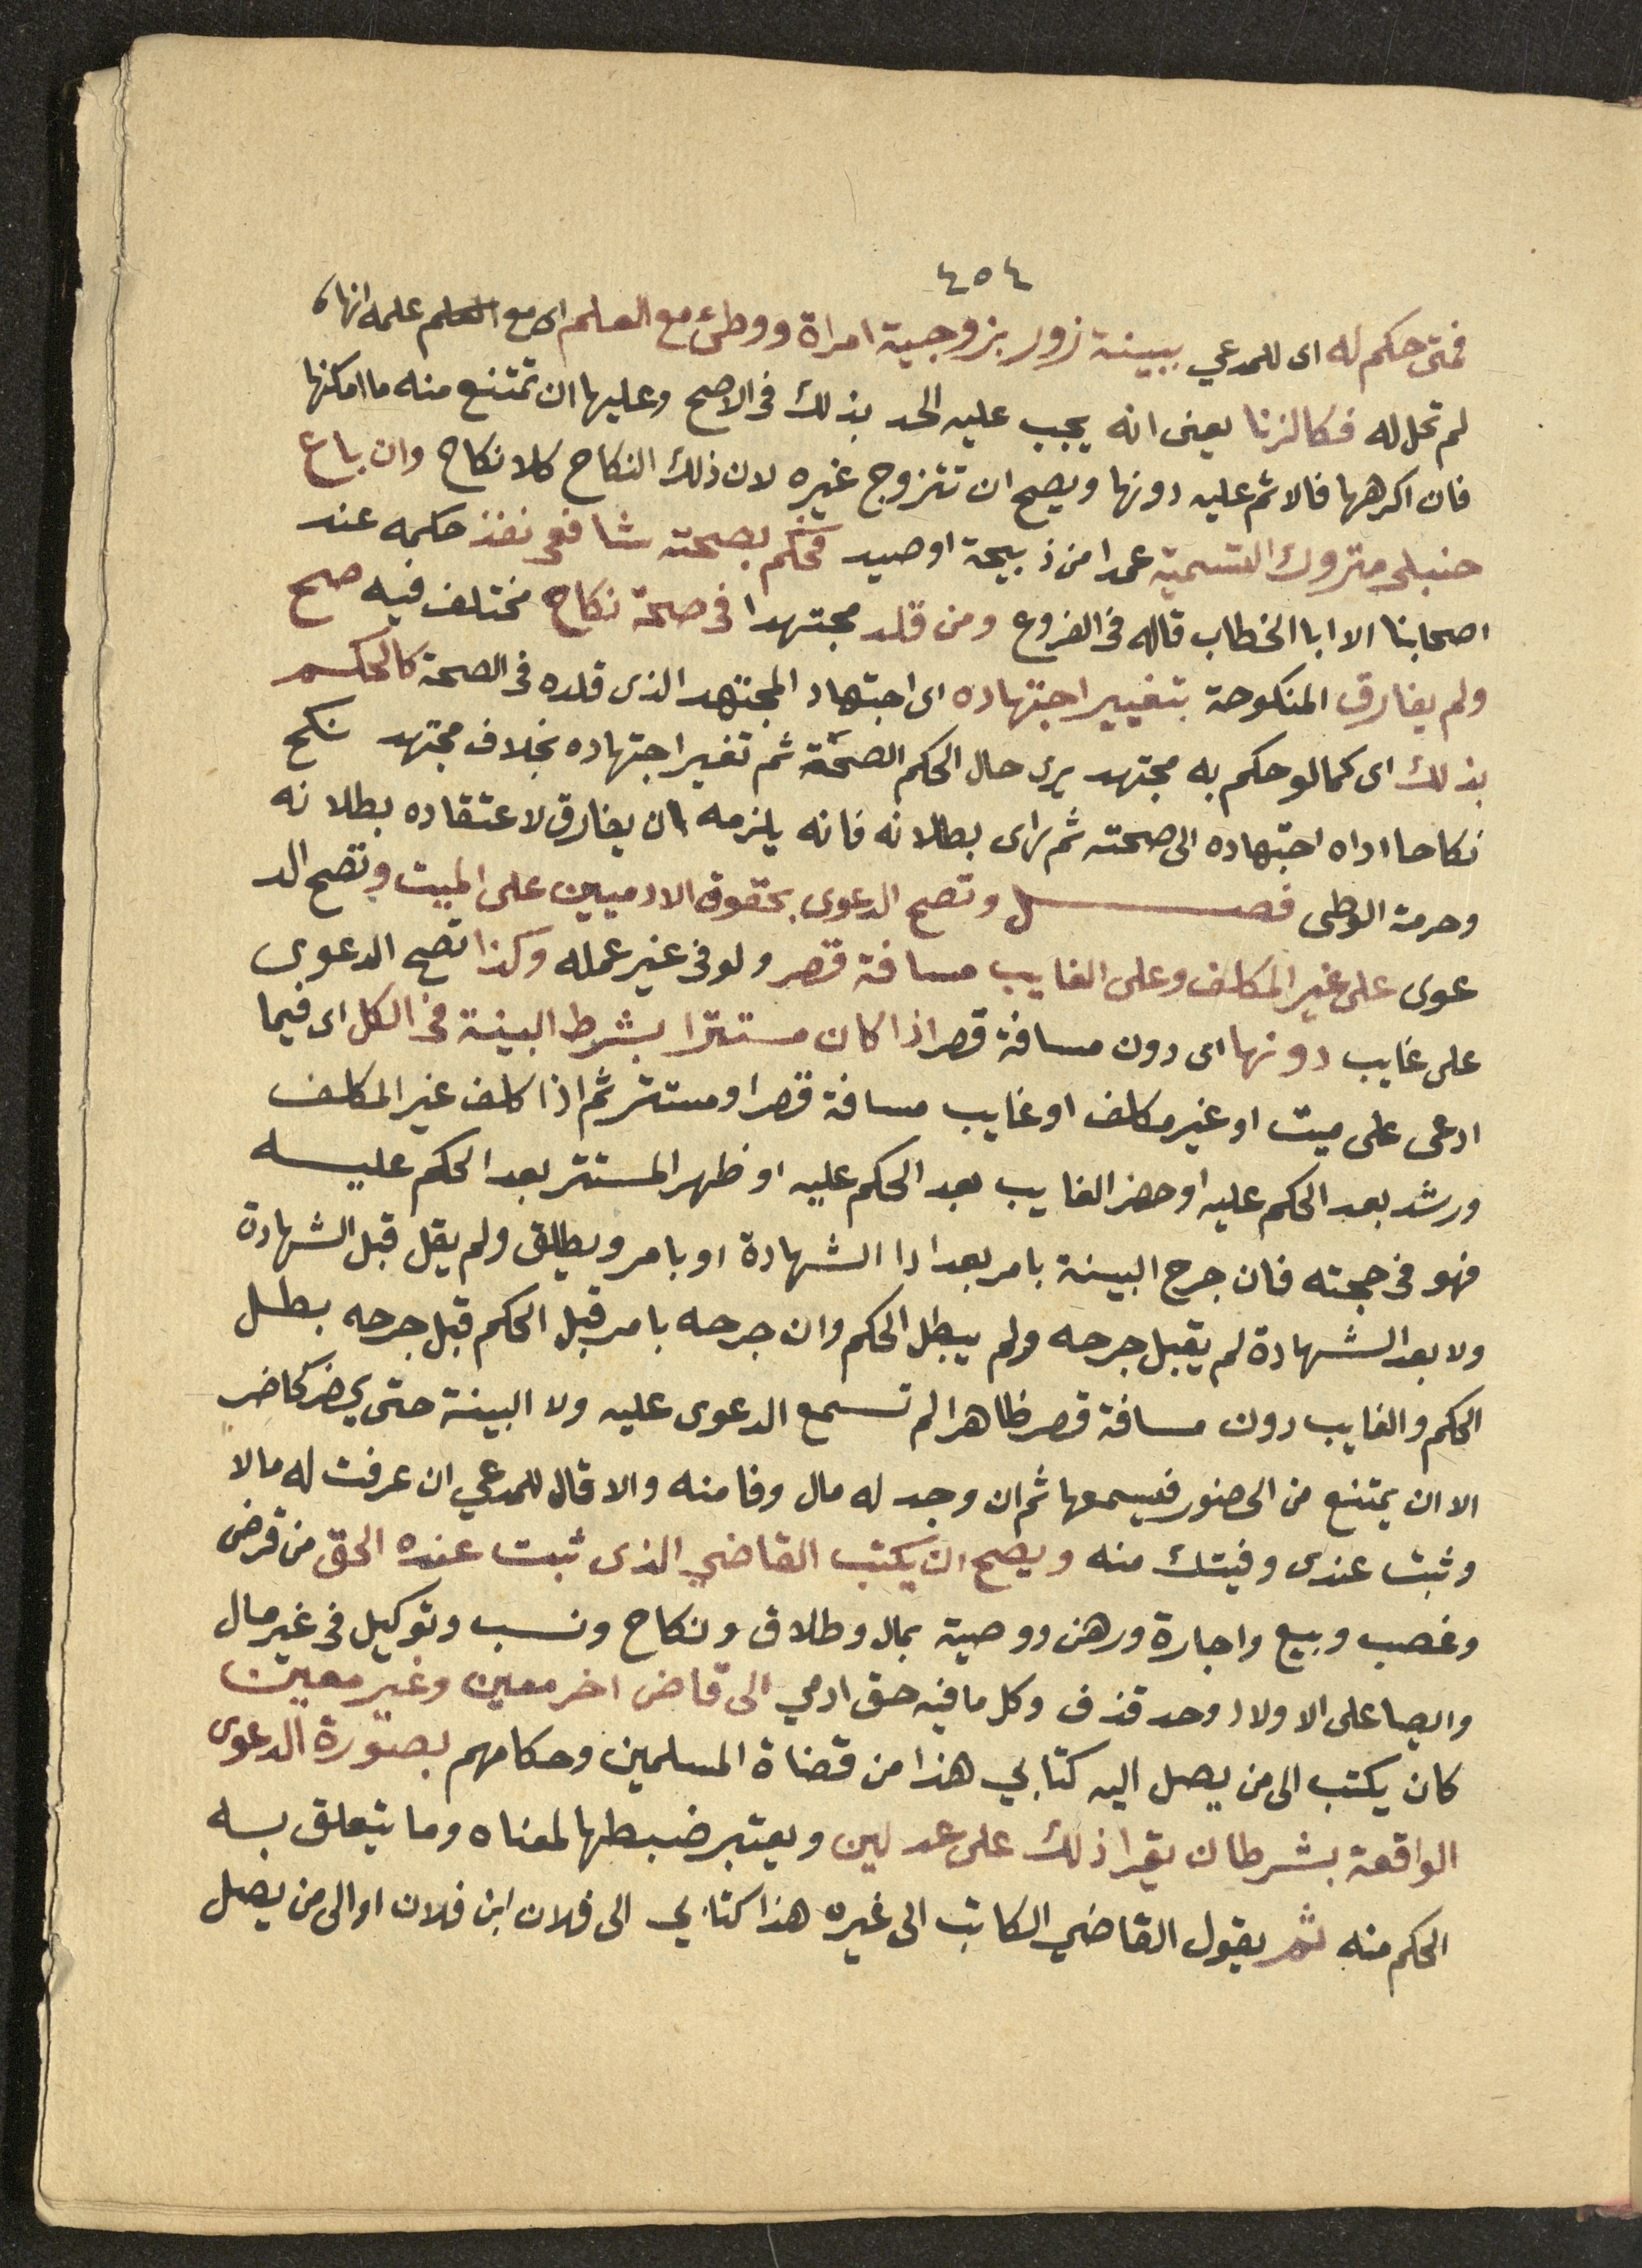 ٤٥٤
فمتى حكم له اى للمدعي ببينة زور بزوجية امراة ووطئ مع العلم اى مع العلم علمه انها
لم تحل له فكالزنا يعنى انه يجب عليه الحد بذلك فى الاصح وعليها ان تمتنع منه ما امكنها
فان اكرهها فالاثم عليه دونها ويصح ان تتزوج غيره لان ذلك النكاح كلا نكاح وان باع
حنبلى متروك التسمية عمدا من ذبيحة او صيد فحكم بصحته شافعى نفذ حكمه عند
اصحابنا الا ابا الخطاب قاله فى الفروع ومن قلد مجتهدا فى صحة نكاح مختلف فيه صح
ولم يفارق المنكوحة بتغيير اجتهاده اى اجتهاد المجتهد الذى قلده فى الصحة كالحكم
بذلك اى كما لو حكم به مجتهد يرى حال الحكم الصحة ثم تغير اجتهاده بخلاف مجتهد نكح
نكاحا اداه اجتهاده الى صحته ثم راى بطلانه فانه يلزمه ان يفارق لاعتقاده بطلانه
وحرمة الوطى فصل وتصح الدعوى بحقوق الادميين على الميت وتصح الد
عوى على غير المكلف وعلى الغايب مسافة قصر ولو فى غير عمله وكذا تصح الدعوى
على غايب دونها اى دون مسافة قصر اذا كان مستترا بشرط البينة فى الكل اى فيما
ادعى على ميت او غير مكلف او غايب مسافة قصر او مستتر ثم اذا كلف غير المكلف
ورشد بعد الحكم عليه او حضر الغايب بعد الحكم عليه او ظهر المستتر بعد الحكم عليه
فهو فى حجته فان جرح البينة بامر بعد ادا الشهادة او بامر ويطلق ولم يقل قبل الشهادة
ولا بعد الشهادة لم يقبل جرحه ولم يبطل الحكم وان جرحه بامر قبل الحكم قبل جرحه بطل
الحكم والغايب دون مسافة قصر ظاهرا لم تسمع الدعوى عليه ولا البينة حتى يحضر كحاضر
الا ان يمتنع من الحضور فيسمعها ثم ان وجد له مال وفا منه والا قال للمدعي ان عرفت له مالا
وثبت عندى وفيتك منه ويصح ان يكتب القاضي الذى ثبت عنده الحق من قرض
وغصب وبيع واجارة ورهن ووصية بمال وطلاق ونكاح ونسب وتوكيل فى غير مال
وايصا على الاولاد وحد قذف وكل ما فيه حق ادمي الى قاض اخر معين وغير معين
كان يكتب الى من يصل اليه كتابي هذا من قضاة المسلمين وحكامهم بصورة الدعوى
الواقعة بشرط ان يقرا ذلك على عدلين ويعتبر ضبطها لمعناه وما يتعلق به
الحكم منه ثم يقول القاضي الكاتب الى غيره هذا كتابي الى فلان ابن فلان او الى من يصل